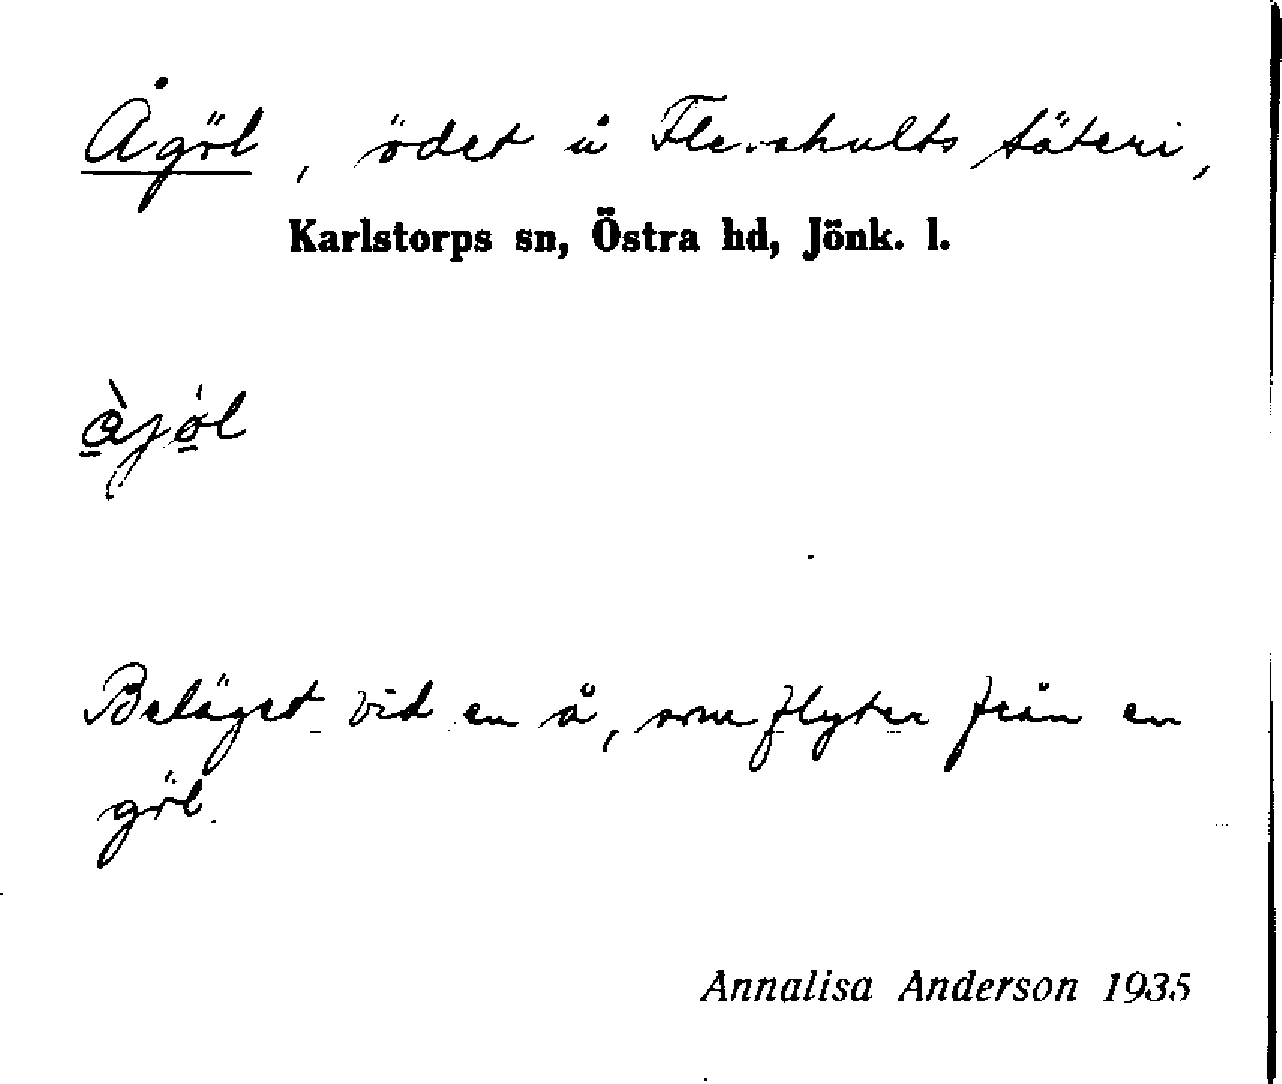 Ågöl, ödet å Flenshults säteri,
Karlstorps sn, Östra hd, Jönk. l.
àjöl
Beläget vid en å, som flyter från en
göl.
Annalisa Anderson 1935